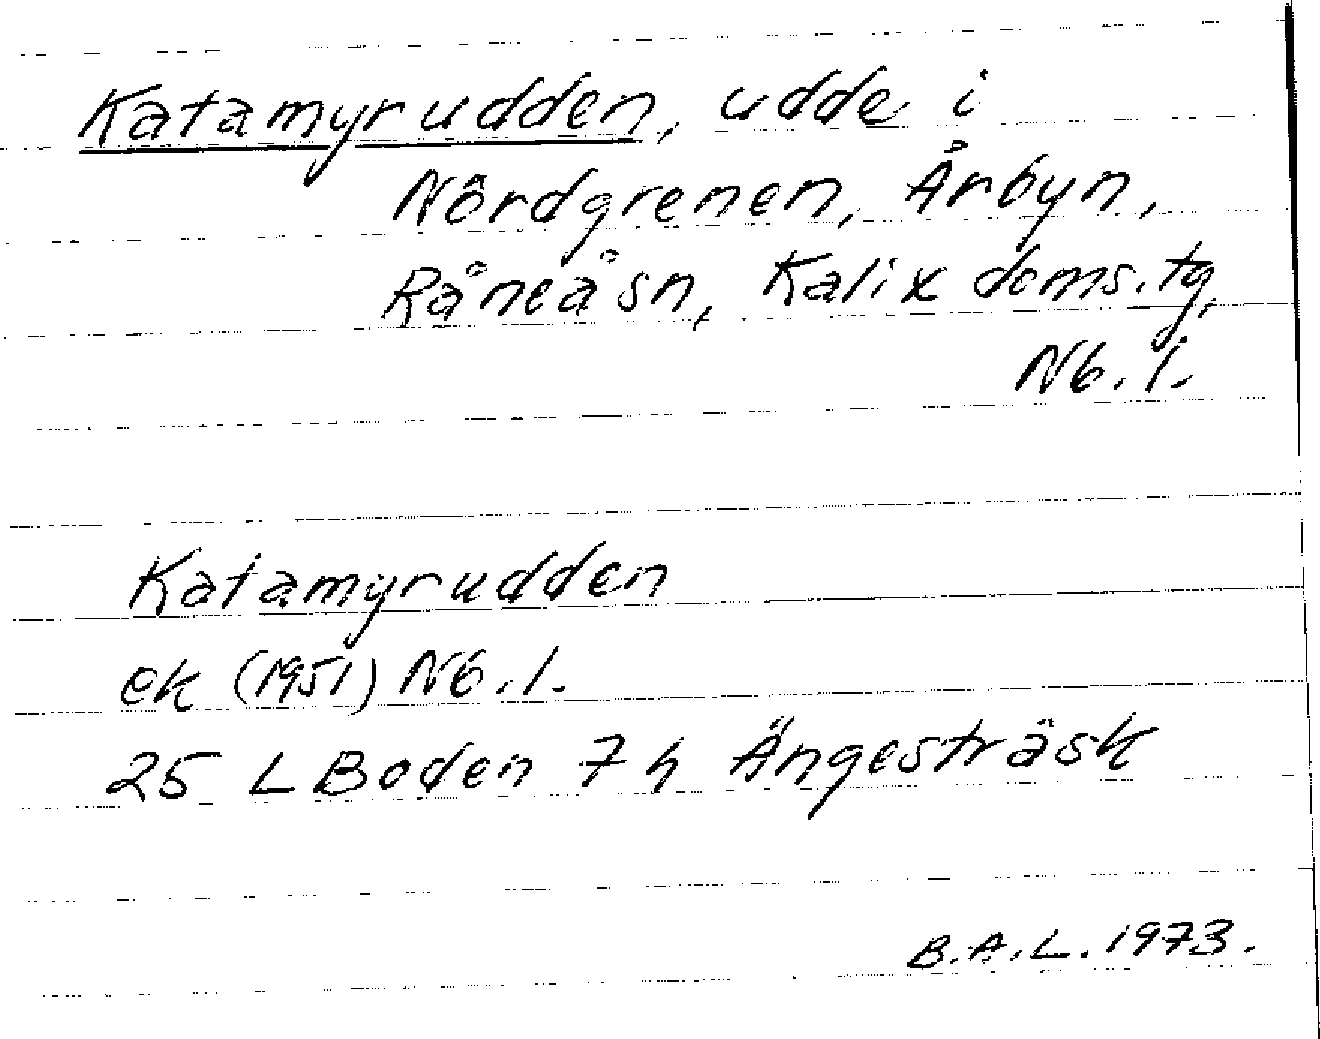 Katamyrudden, udde i
Nördgrenen, Årbyn,
Råneå sn, Kalix doms.tg,
Nb. l.
Katamyrudden
ek (1951) Nb. l.
25 L Boden 7 h Ängesträsk
B.A.L. 1973.